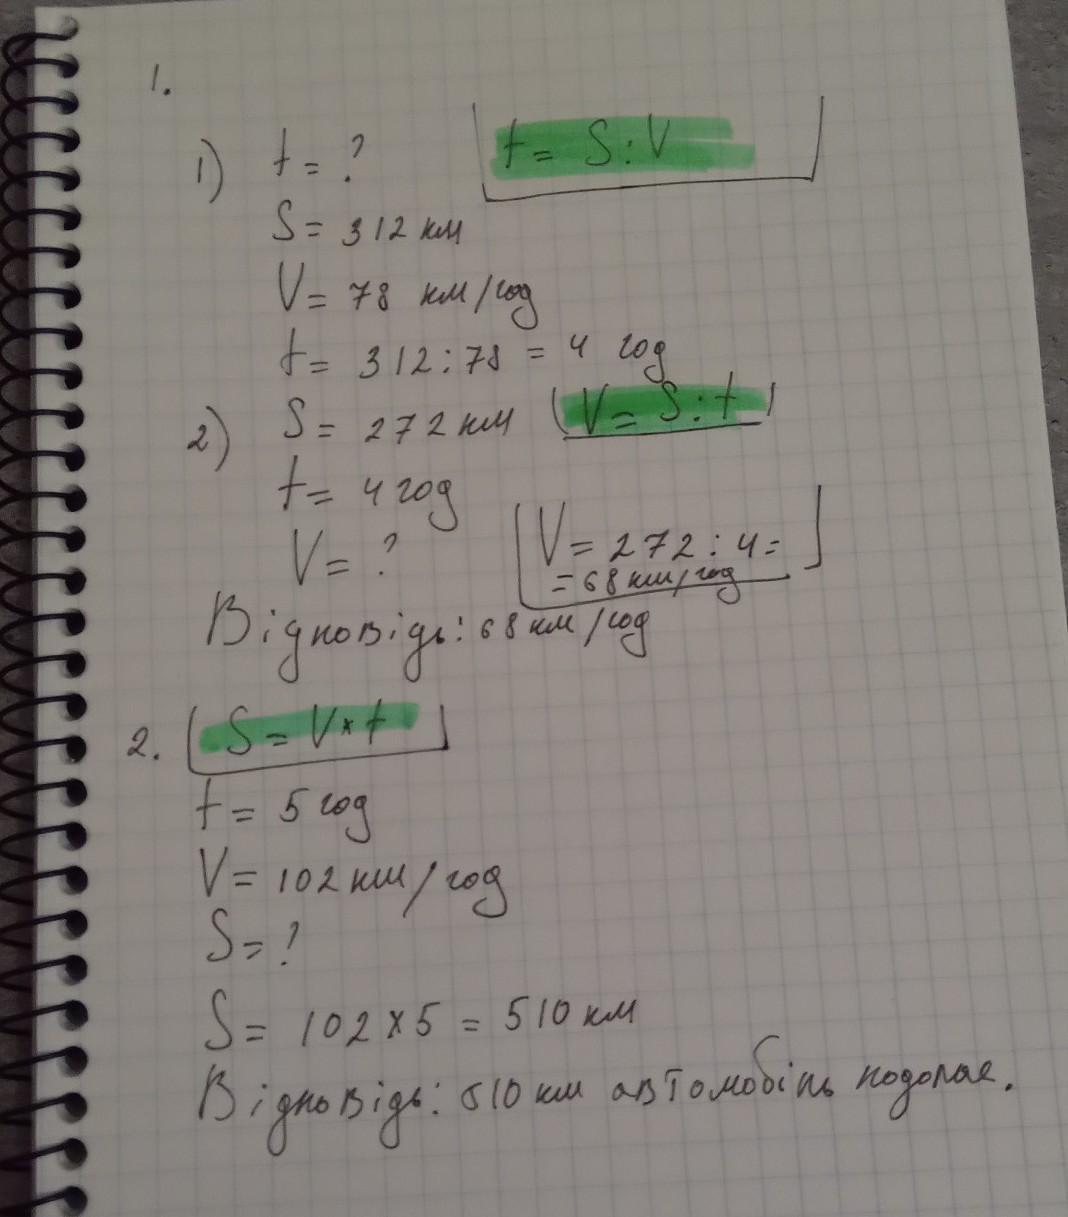 1.
1) t = ? t = S : V
S = 312 км
V = 78 км/год
t = 312 : 78 = 4 год
2) S = 272 км V = S : t
t = 4 год
V = ? V = 272 : 4 =
= 68 км/год
Відповідь: 68 км/год
2. S = V × t
t = 5 год
V = 102 км/год
S = ?
S = 102 × 5 = 510 км
Відповідь: 510 км автомобіль подолає.